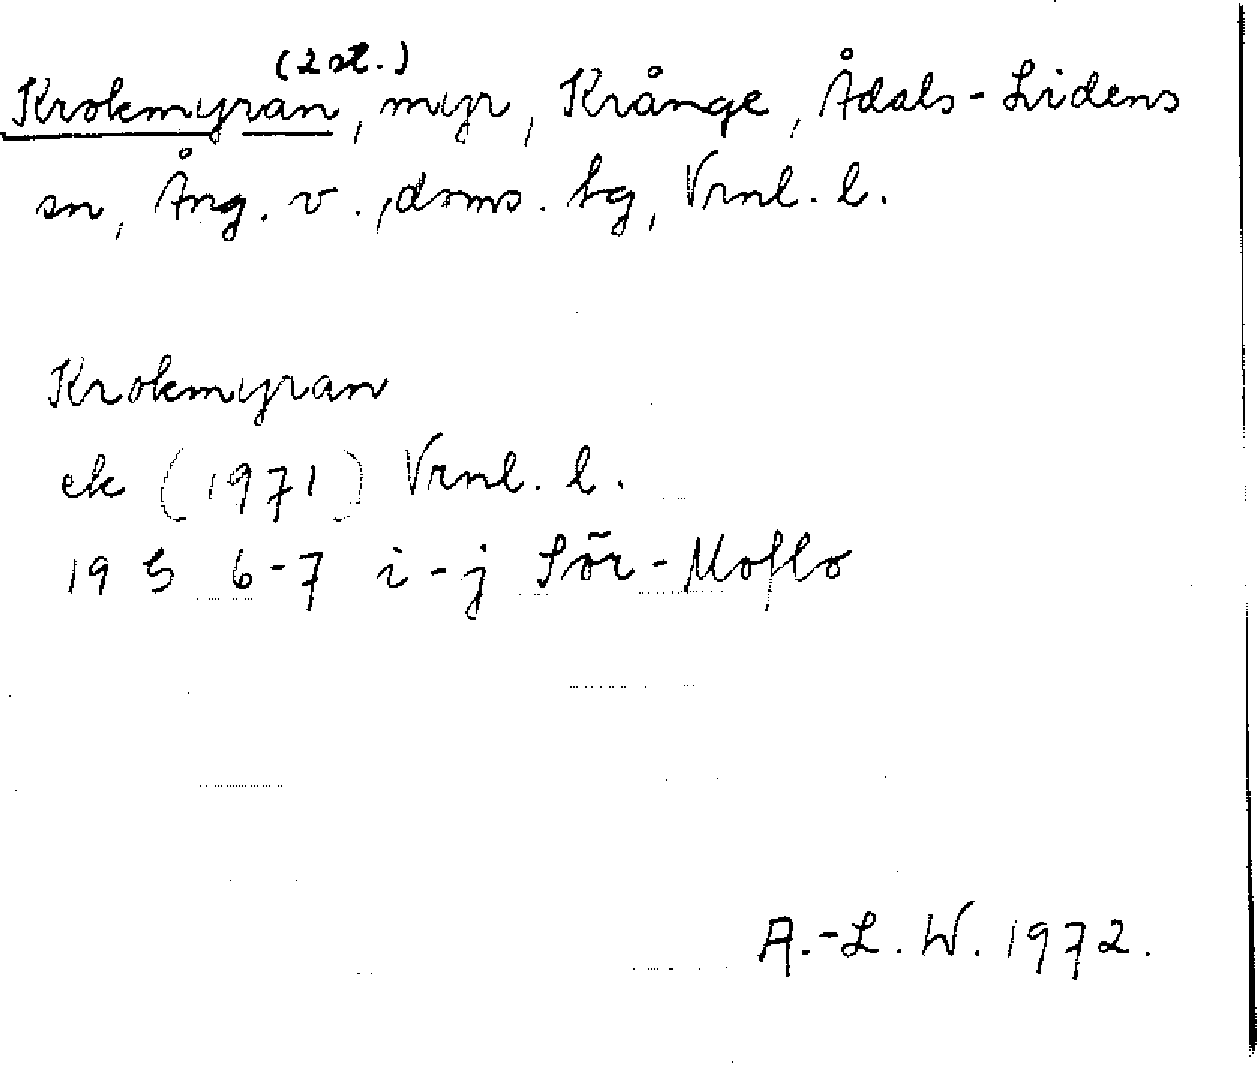 (2 st.)
Krokmyran, myr, Krånge, Ådals-Lidens
sn, Ång. v., doms. tg, Vrnl. l.
Krokmyran
ek (1971) Vrnl. l.
19 5 6-7 i-j Sör-Moflo
A.-L. W. 1972.